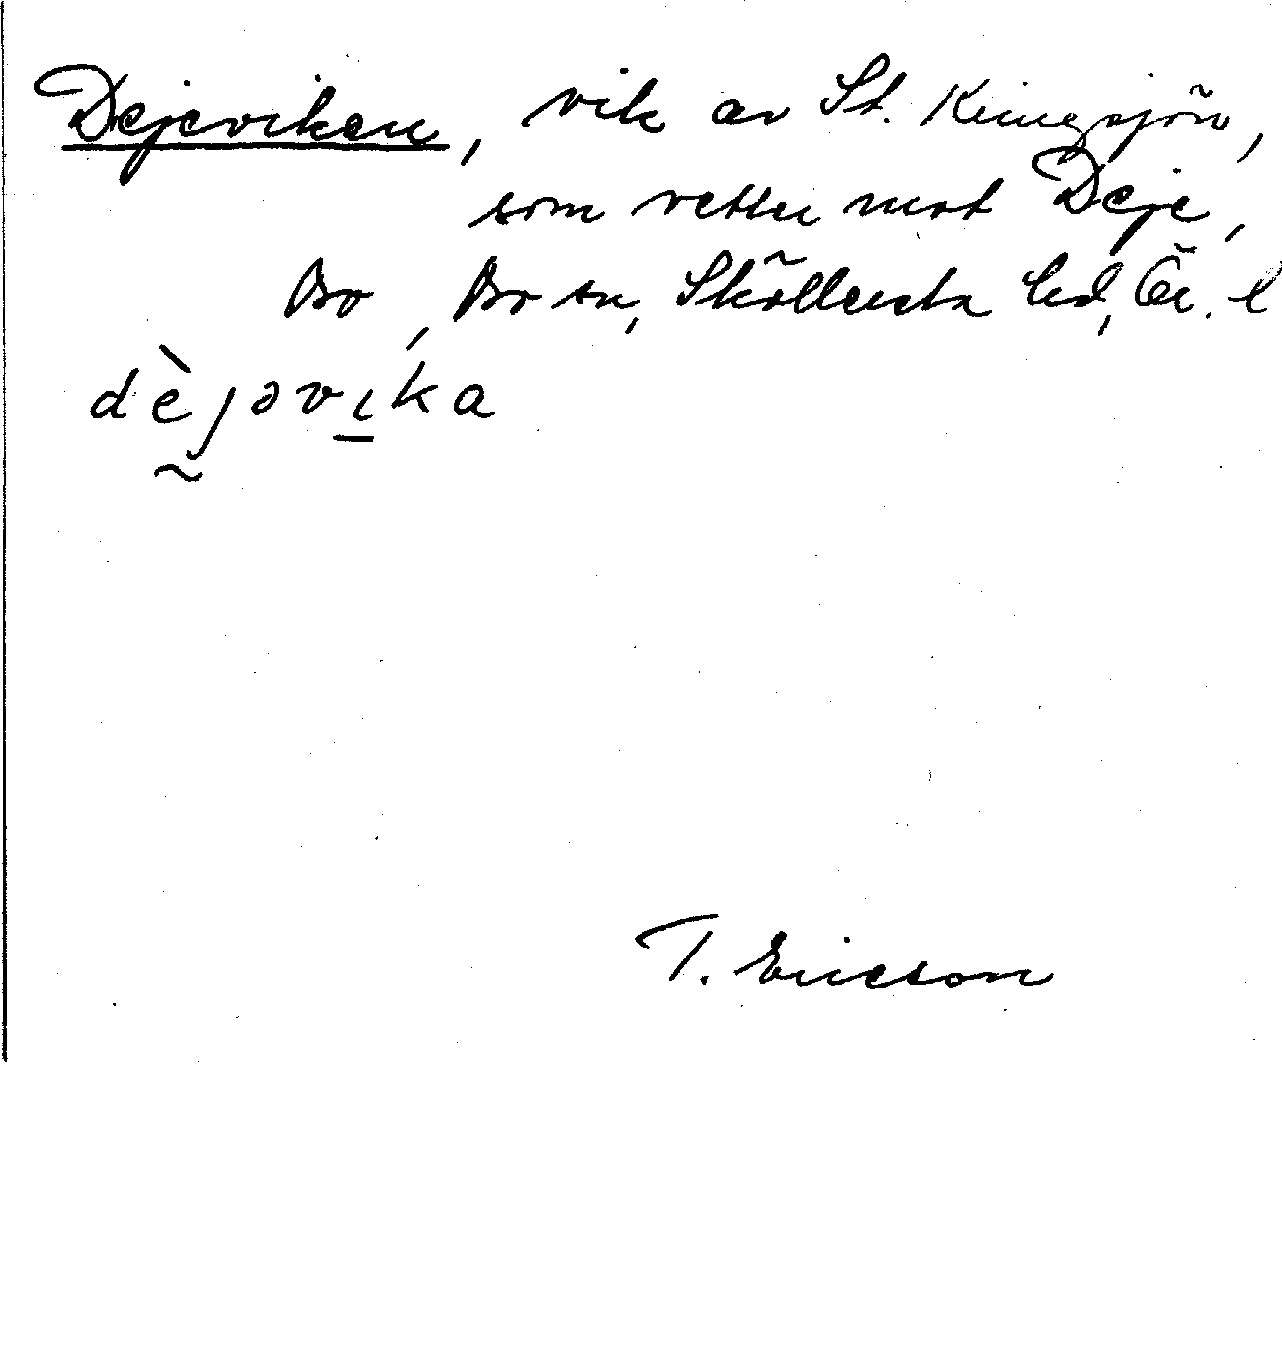 Dejeviken, vik av St. Kringsjön,
som vetter mot Deje,
Bo, Bo sn, Sköllersta hd, Ör. l
dèjəvika
T. Ericson